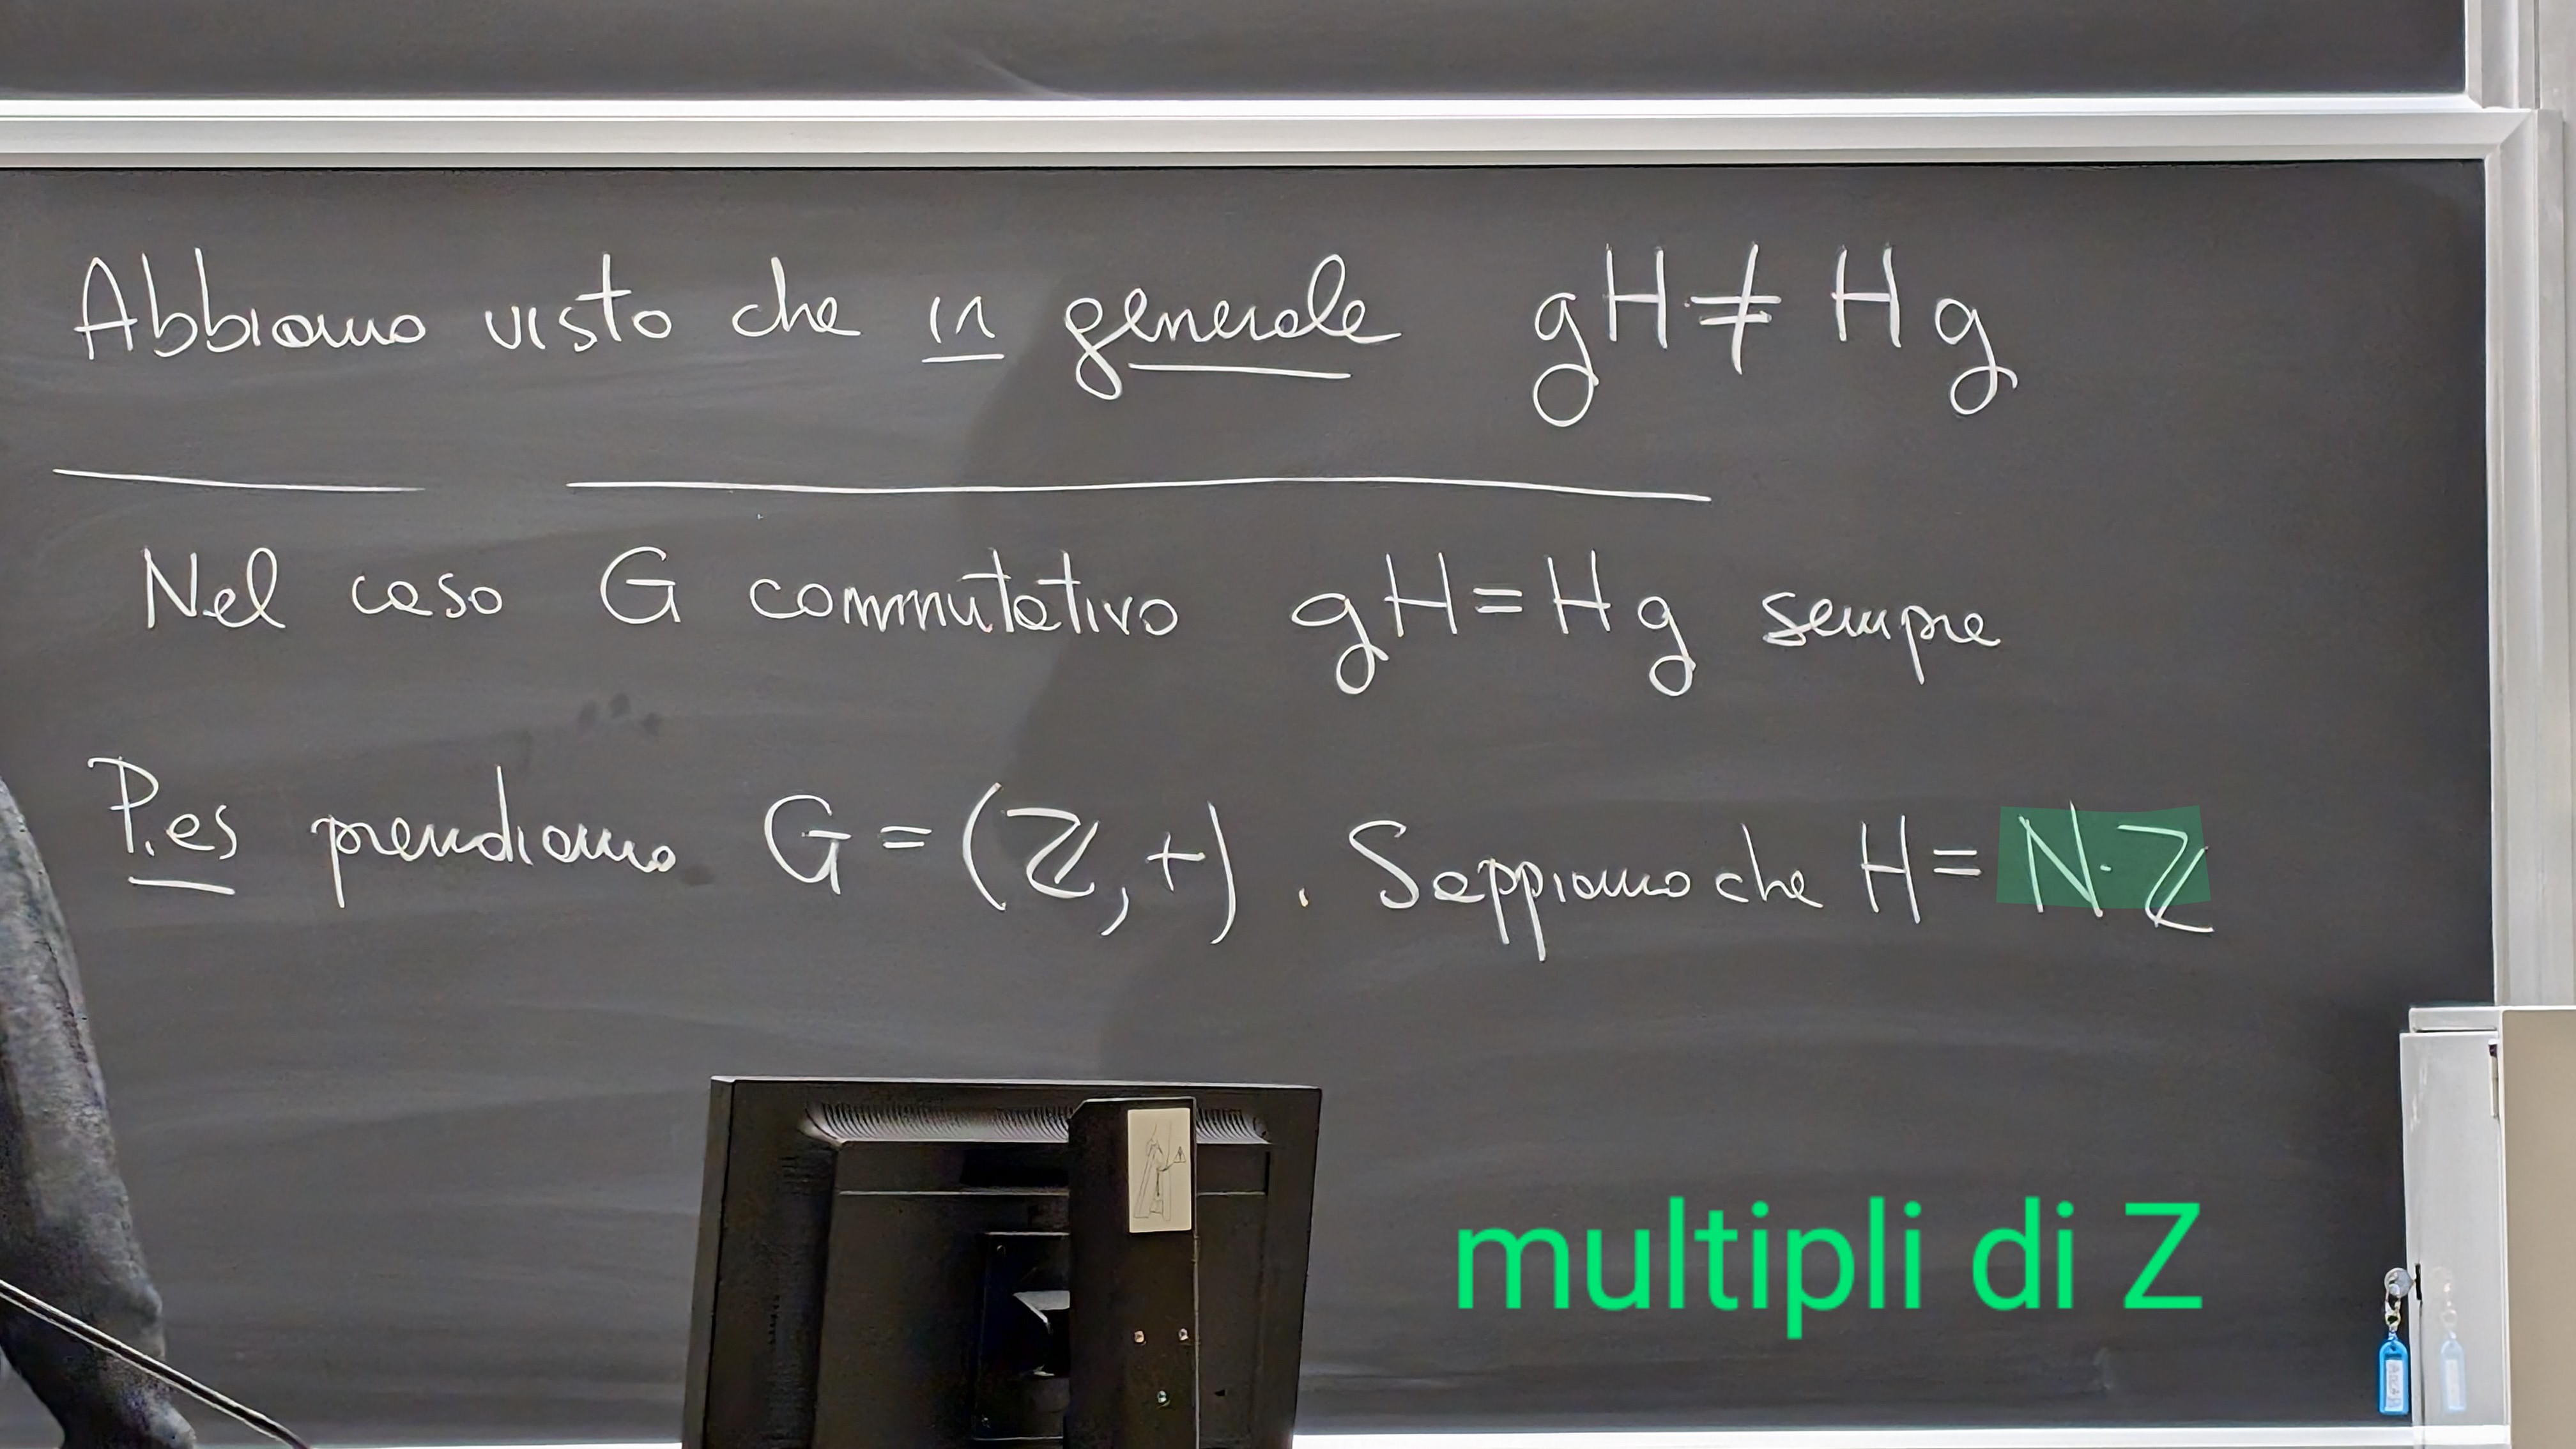 Abbiamo visto che in generale gH ≠ Hg
Nel caso G commutativo gH = Hg sempre
P.es prendiamo G = (ℤ, +). Sappiamo che H = N·ℤ
multipli di Z